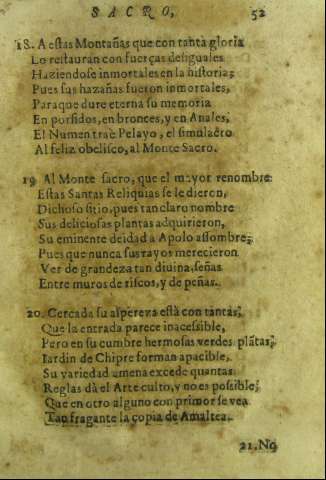 SACRO, 52
18. A eſtas Montañas que con tanta gloria
Lo reſtauran con fuerças deſiguales
Haziendoſe inmortales en la hiſtoria;
Pues ſus hazañas fueron inmortales,
Paraque dure eterna ſu memoria
En porfidos, en bronces, y en Anales,
El Numen trae Pelayo, el ſimulacro
Al feliz obeliſco, al Monte Sacro.
19 Al Monte ſacro, que el mayor renombre
Eſtas Santas Reliquias ſe le dieron,
Dichoſo ſitio, pues tan claro nombre
Sus delicioſas plantas adquirieron,
Su eminente deidad a Apolo aſſombre;
Pues que nunca ſus rayos merecieron
Ver de grandeza tan diuina, ſeñas
Entre muros de riſcos, y de peñas.
20. Cercada ſu aſpereza eſtà con tantas;
Que la entrada parece inaceſsible,
Pero en ſu cumbre hermoſas verdes plãtas;
Iardin de Chipre forman apacible,
Su variedad amena excede quantas
Reglas dà el Arte culto, y no es poſsible;
Que en otro alguno con primor ſe vea
Tan fragante la copia de Amaltea.
21. No